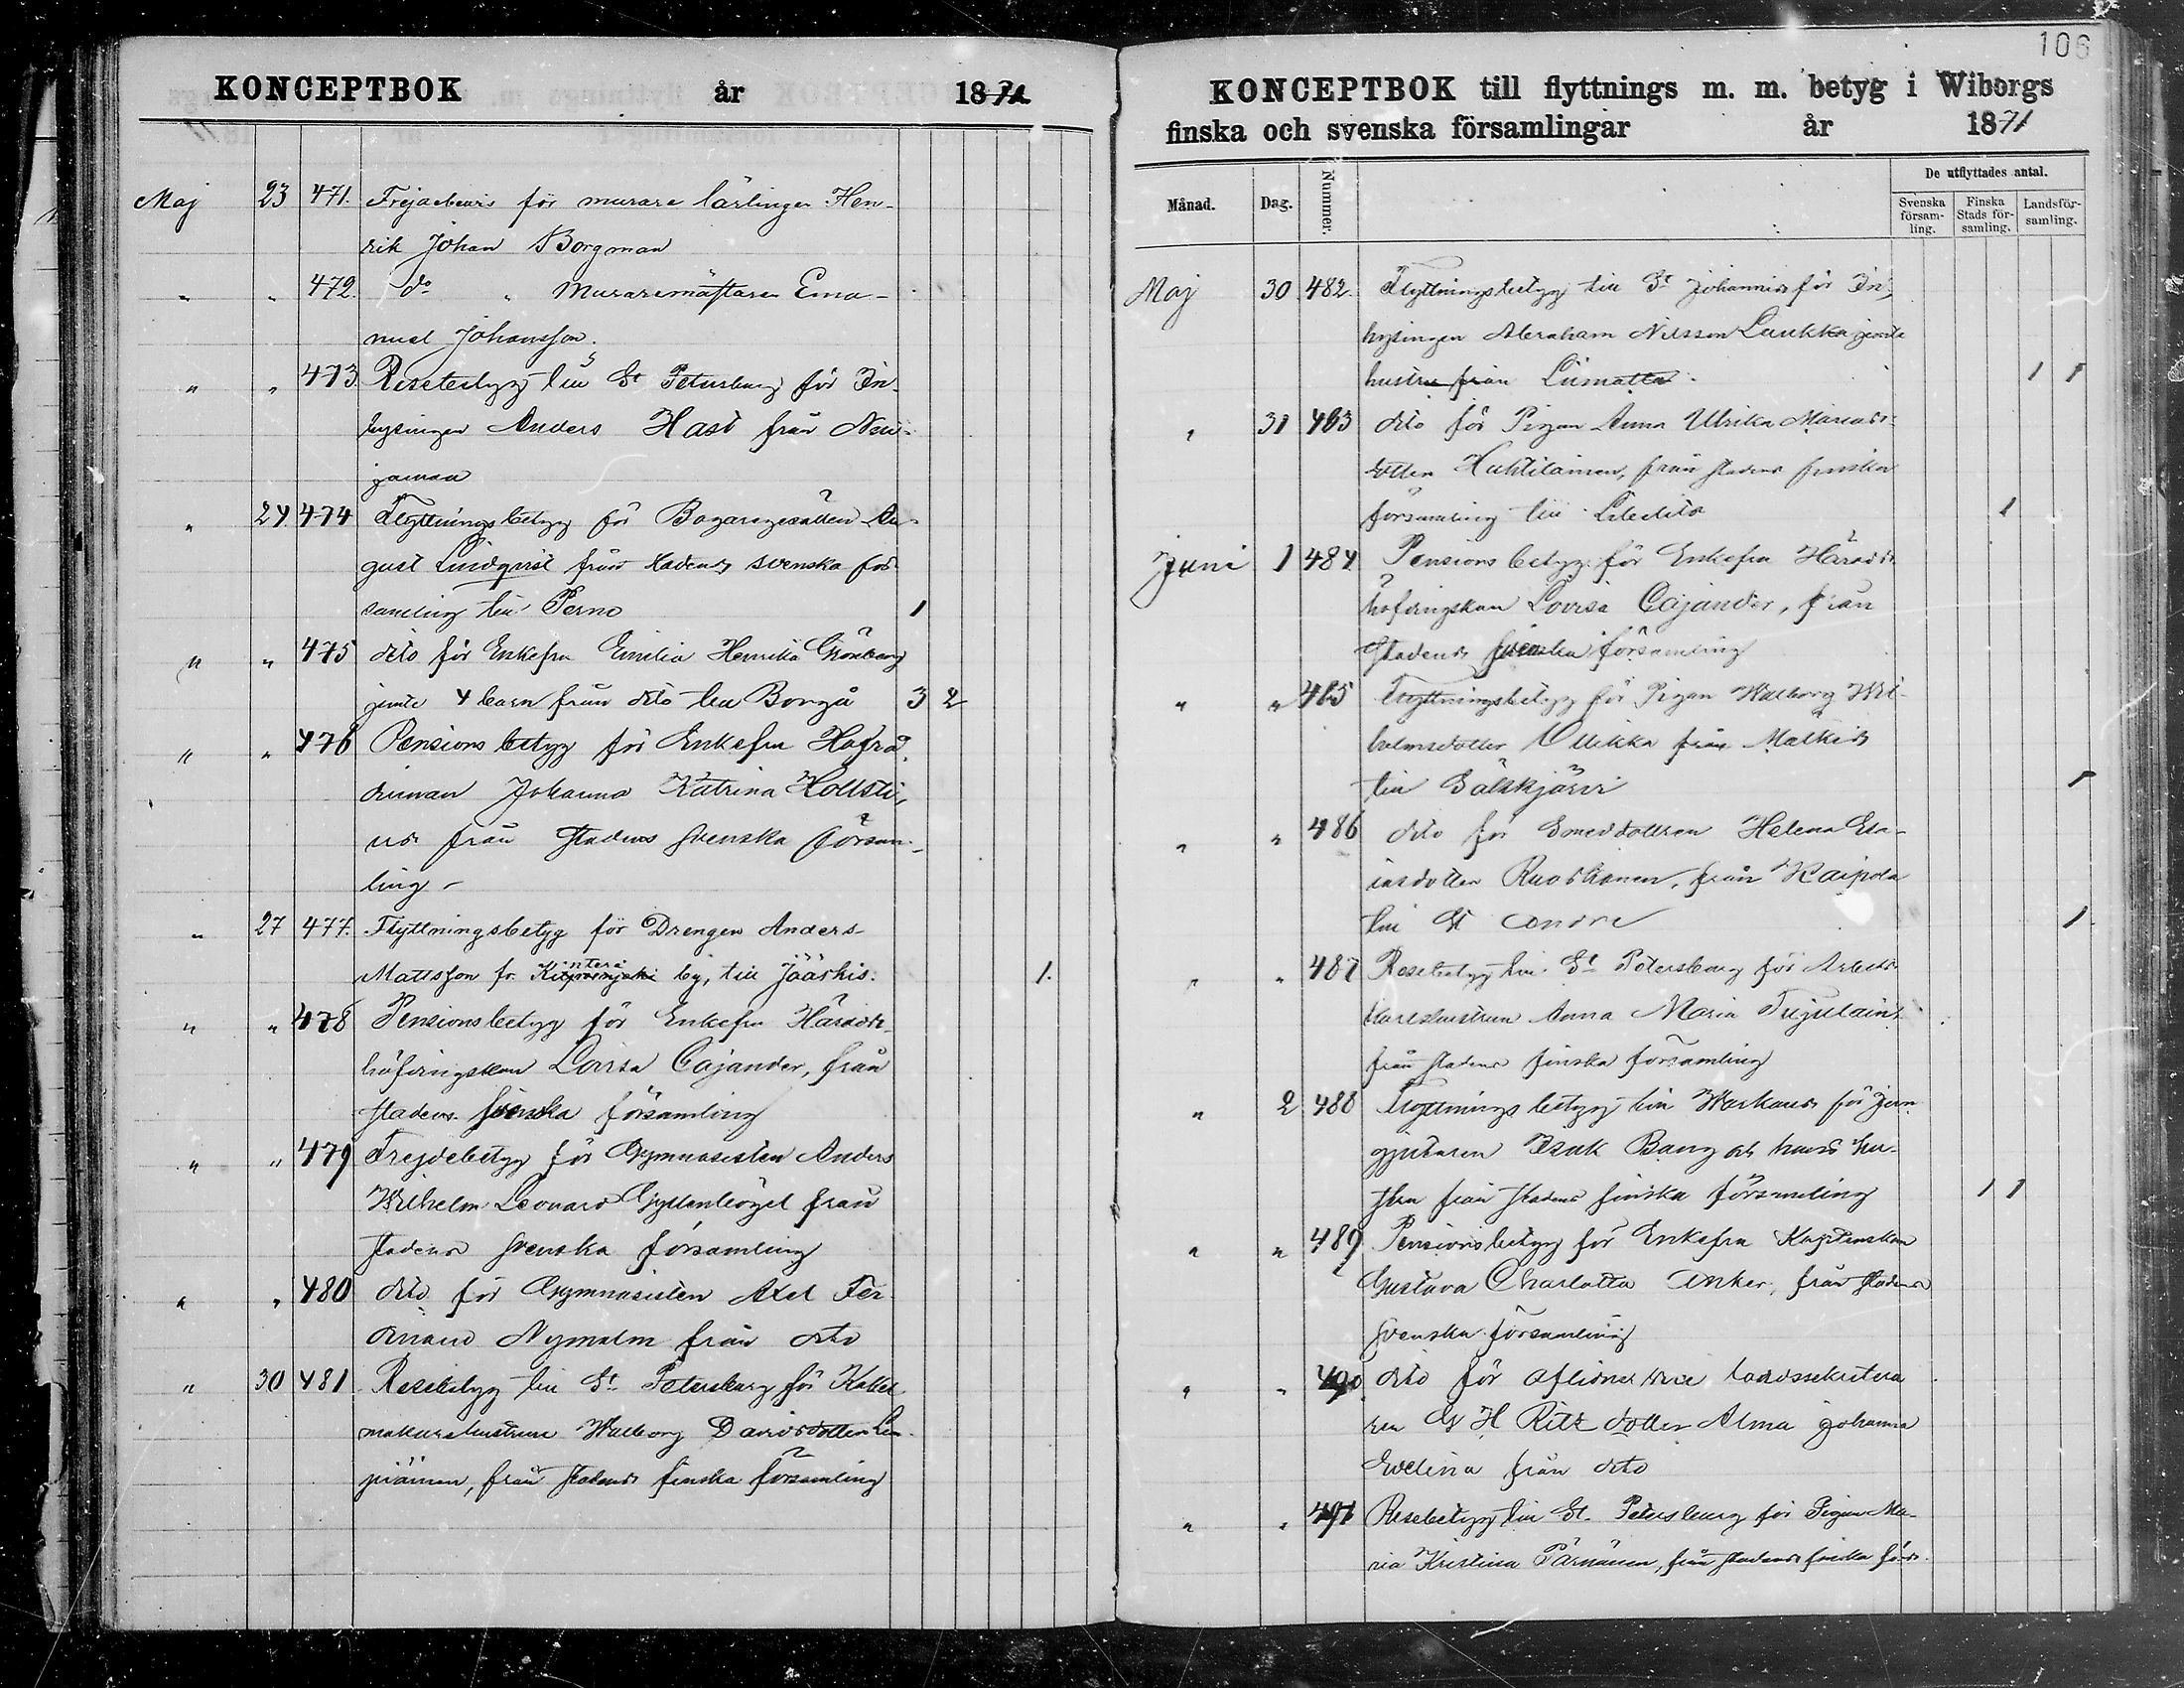 KONCEPTBOK år 1871
Maj 23 471. Frejdebevis för murare lärlingen Hen-
rik Johan Borgman
" " 472. do " Muraremästaren Ema-
nuel Johansson.
" " 473 Resebetyg till St Petersburg för In-
hysingen Anders Hast från Nui-
jamaa
" 24 474 Flyttningsbetyg för Bagaregesällen Au-
gust Lindqvist från stadens svenska för
samling till Perno 1
" " 475 dito för Enkefru Emilia Henrika Grönberg
jemte 4 barn från dito till Borgå 3 2
" " 476 Pensionsbetyg för Enkefru Hofrå-
dinnan Johanna Katrina Hollsti-
us från stadens svenska försam-
ling -
" 27 477. Flyttningsbetyg för Drengen Anders
Mattsson fr. Kintere by, till Jääskis. 1.
" " 478 Pensionsbetyg för Enkefru Härads-
höfdingskan Lovisa Cajander, från
stadens svenska församling
" " 479 Frejdebetyg för Gymnasisten Anders
Wilhelm Leonard Gyllenbögel från
stadens svenska församling
" " 480 dito för Gymnasisten Axel Fer
dinand Nymalm från dito
" 30 481 Resebetyg till St Petersburg för Kakel
makarehustrun Walborg Davidsdotter
från stadens finska församling
106
KONCEPTBOK till flyttnings m. m. betyg i Wiborgs
finska och svenska församlingar år 1871
Månad. Dag. Nummer. De utflyttades antal.
Svenska försam-ling. Finska Stads för-samling. Landsför-samling.
Maj 30 482. Flyttningsbetyg till St Johannis för In-
hysingen Abraham Nilsson Laukka jemte
hustru från Liimatta. 1 1
" 31 483 dito för Pigan Anna Ulrika Mariæ-
dotter Huhtilainen, från stadens finska
församling till Libelits 1
Juni 1 484 Pensionsbetyg för Enkefru Härads
höfdingskan Lovisa Cajander, från
Stadens svenska församling
" " 485 Flyttningsbetyg för Pigan Walborg Wil-
helmsdotter Ollikka från Matkis
till Sälskjärvi 1
" " 486 dito för Smeddottren Helena Esa-
iasdotter Ruoskanen, från Kaipola
till St Andre 1
" " 487 Resebetyg till St Petersburg för Arbets
karlshustrun Anna Maria
från stadens finska församling
" 2 488 Flyttningsbetyg till Warkaus för jern
gjutaren Isak Bang och hans hu-
stru från stadens finska församling 1 1
" " 489 Pensionsbetyg för Enkefru Kaptenskan
Gustava Charlotta Anker, från stadens
svenska församling
" " 490 dito för aflidne vice landssekretera
ren G H Ritz dotter Alma Johanna
Evelina från dito
" " 491 Resebetyg till St. Petersburg för Pigan Ma-
ria Kristina Pärnänen, från stadens finska förs.